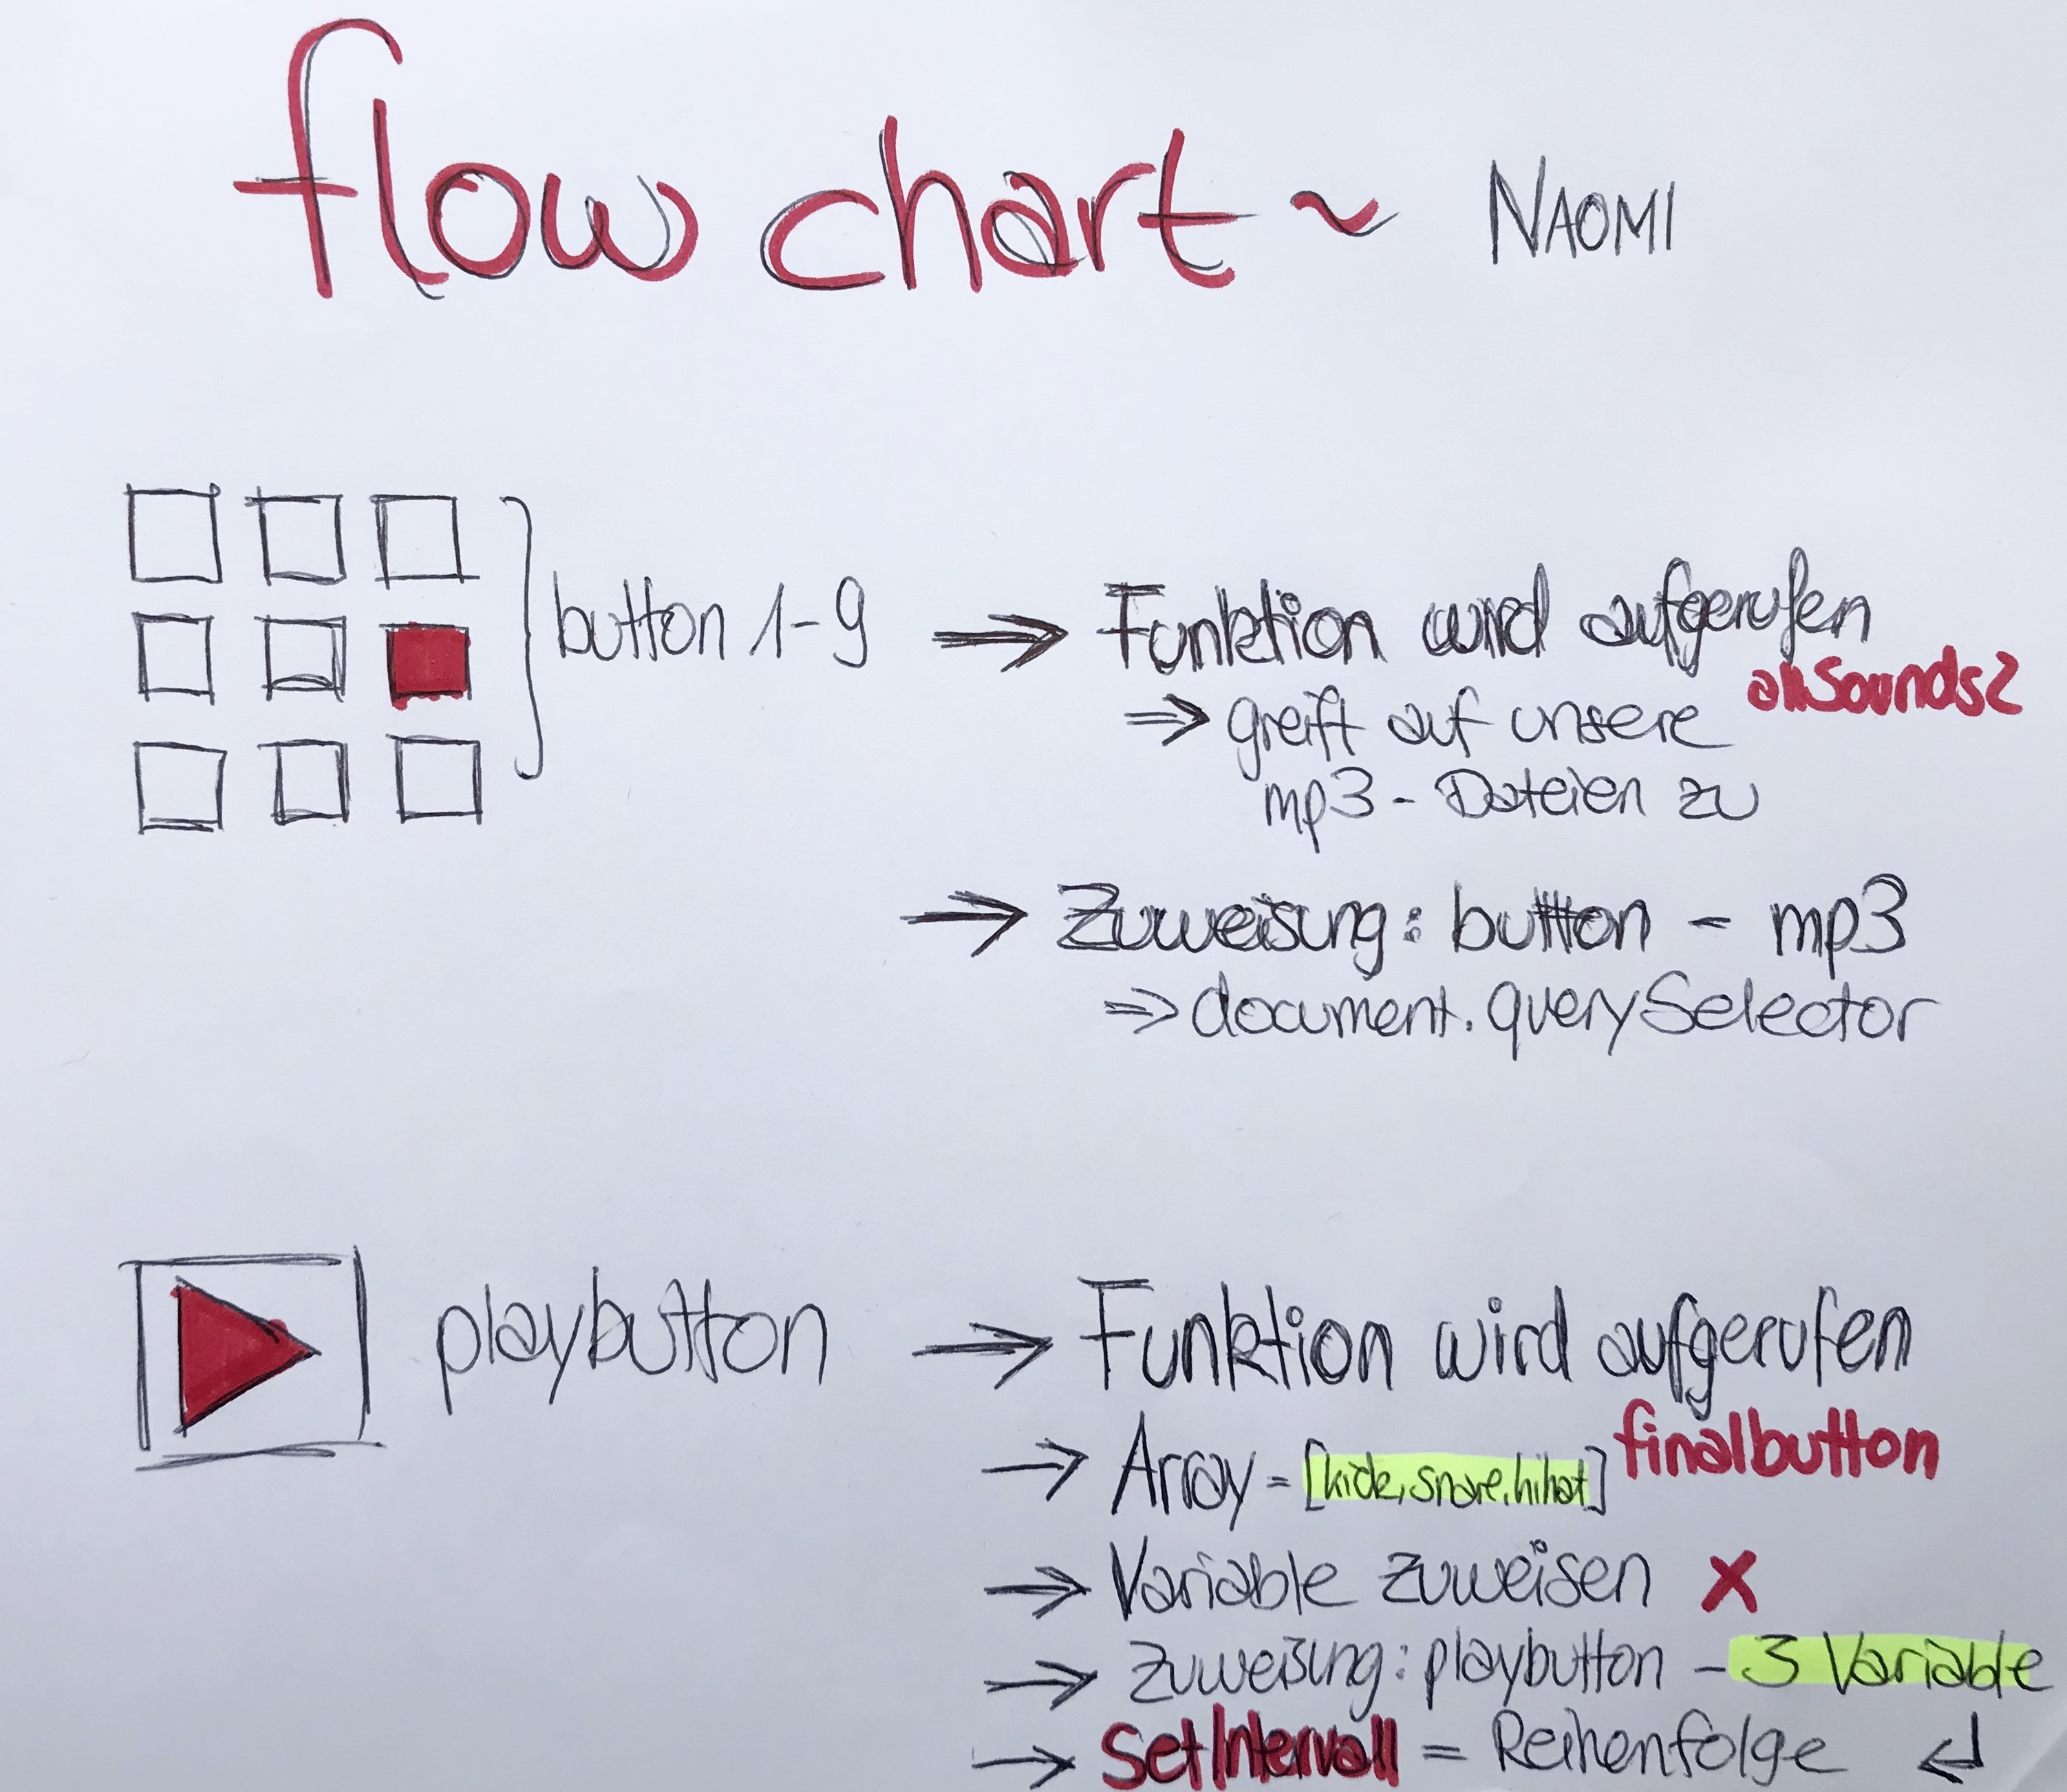 flow chart ~ NAOMI
button 1-9 → Funktion wird aufgerufen
allSounds2
⇒ greift auf unsere
mp3 - Dateien zu
→ Zuweisung: button - mp3
⇒ document.querySelector
playbutton → Funktion wird aufgerufen
finalbutton
→ Array = [kick, snare, hihat]
→ Variable zuweisen x
→ Zuweisung: playbutton - 3 Variable
→ SetIntervall = Reihenfolge ↵